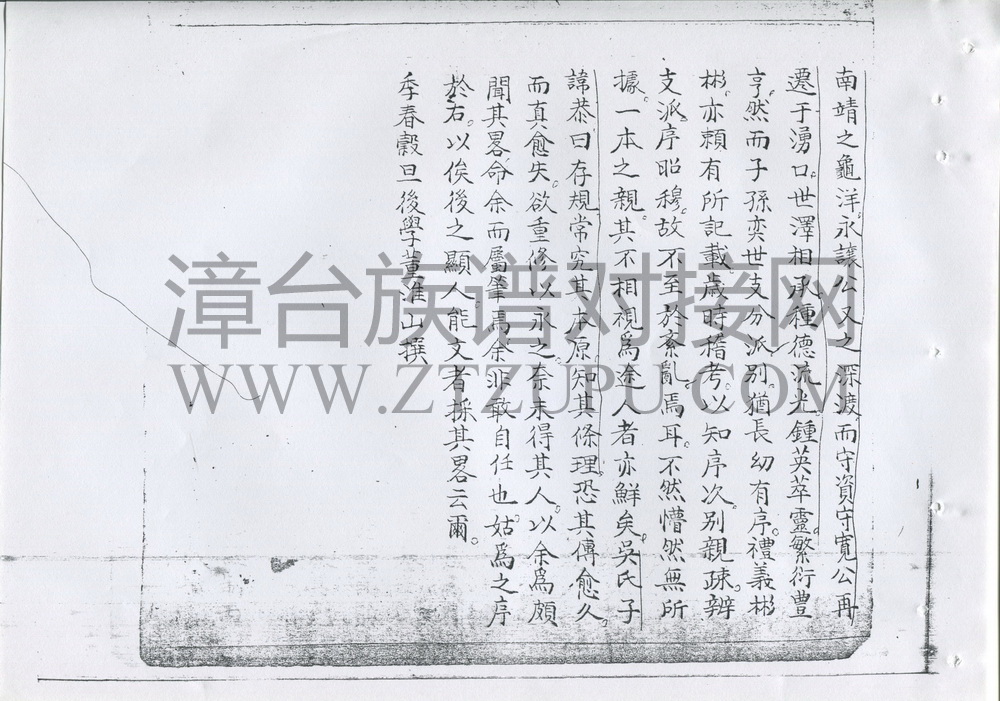 南靖之龜洋永讓公又之深渡而守資守寬公再
遷于湧口。世澤相承種德流光。鍾英萃靈。繁衍豊
亨。然而子孫奕世支分派別。猶長幼有序。禮義彬
彬。亦頼有所記載。歲時稽考。以知序次。別親疎。辨
支派。序昭穆。故不至於紊亂焉耳。不然懵然無所
據。一本之親。其不相視為途人者亦鮮矣。吳氏子
諱恭曰存規常究其本原。知其條理。恐其傳愈久。
而真愈失。欲重修以永之。奈未得其人。以余為頗
聞其畧。命余而屬肇焉。余非敢自任也。姑爲之序
於右。以俟後之顯人。能文者採其畧云爾。
季春穀旦後學董淮山撰
漳台族谱对接网
WWW.ZTZUPU.COM